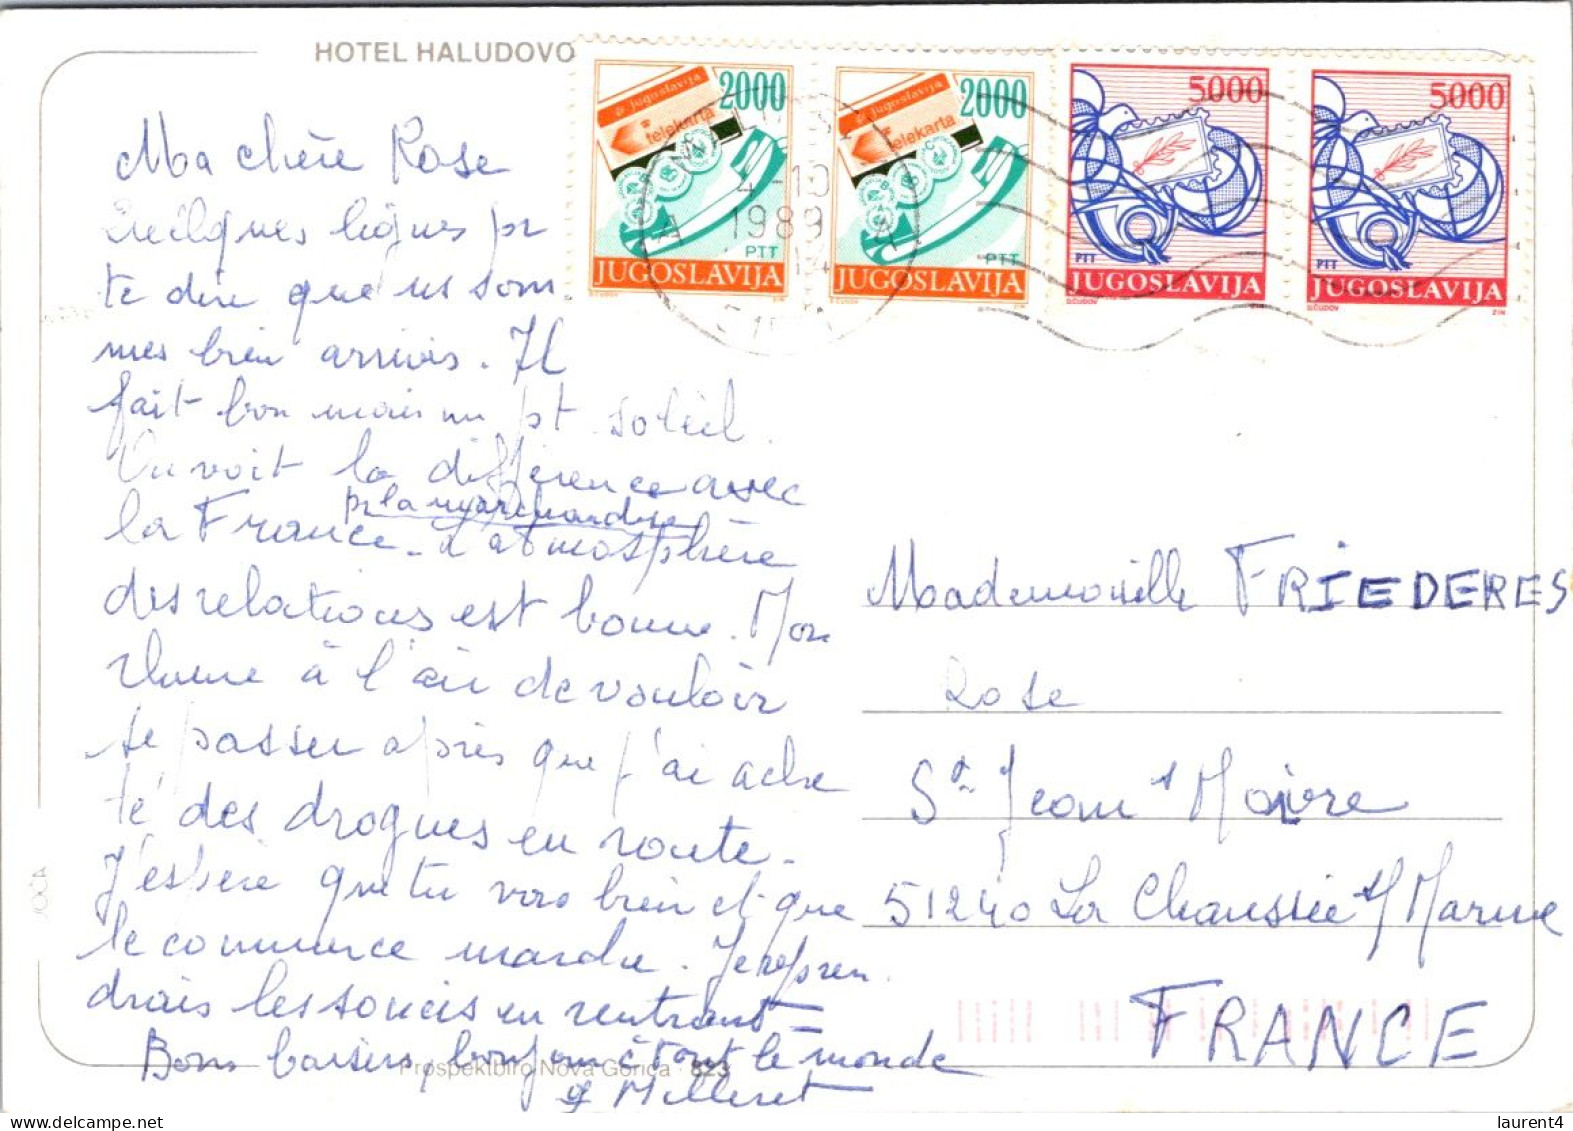 HOTEL HALUDOVO
2000
jugoslavija
telekarta
PTT
JUGOSLAVIJA
2000
jugoslavija
telekarta
PTT
JUGOSLAVIJA
5000
PTT
JUGOSLAVIJA
D.ČUDOV
5000
PTT
JUGOSLAVIJA
D.ČUDOV
ZIN
4-10
1989
Ma chère Rose
Quelques lignes pr
te dire que ns som
mes bien arrivés. Il
fait bon mais un pt soleil.
On voit la différence avec
pr la marchandise
la France. L'atmosphère
des relations est bonne. Mon
rhume à l'air de vouloir
se passer après que j'ai ache
té des drogues en route.
J'espère que tu vas bien et que
le commerce marche. Je repren
drais les soucis en rentrant =
Bons baisers, bonjour à tout le monde
Milleret
Prospektbiro Nova Gorica 823
Mademoiselle FRIEDERES
Rose
St Jean s/ Moivre
51240 La Chaussée s/ Marne
FRANCE
laurent4